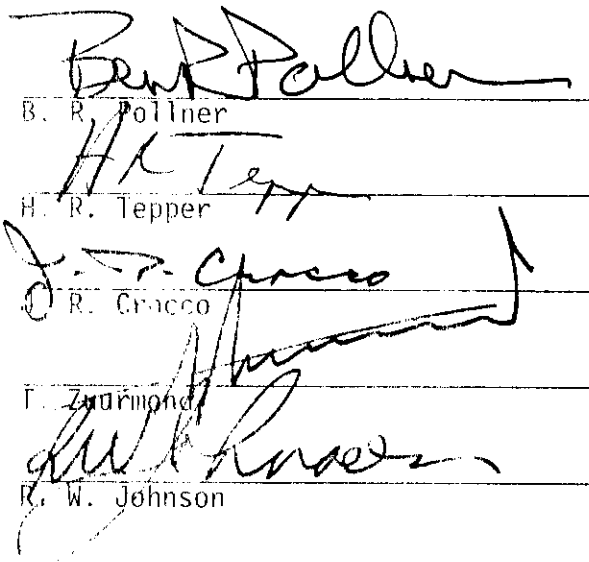 Ben R Pollner
B. R. Pollner
H R Tepper
H. R. Tepper
J. R. Crocco
J. R. Crocco
Zuurmond
R. W. Johnson